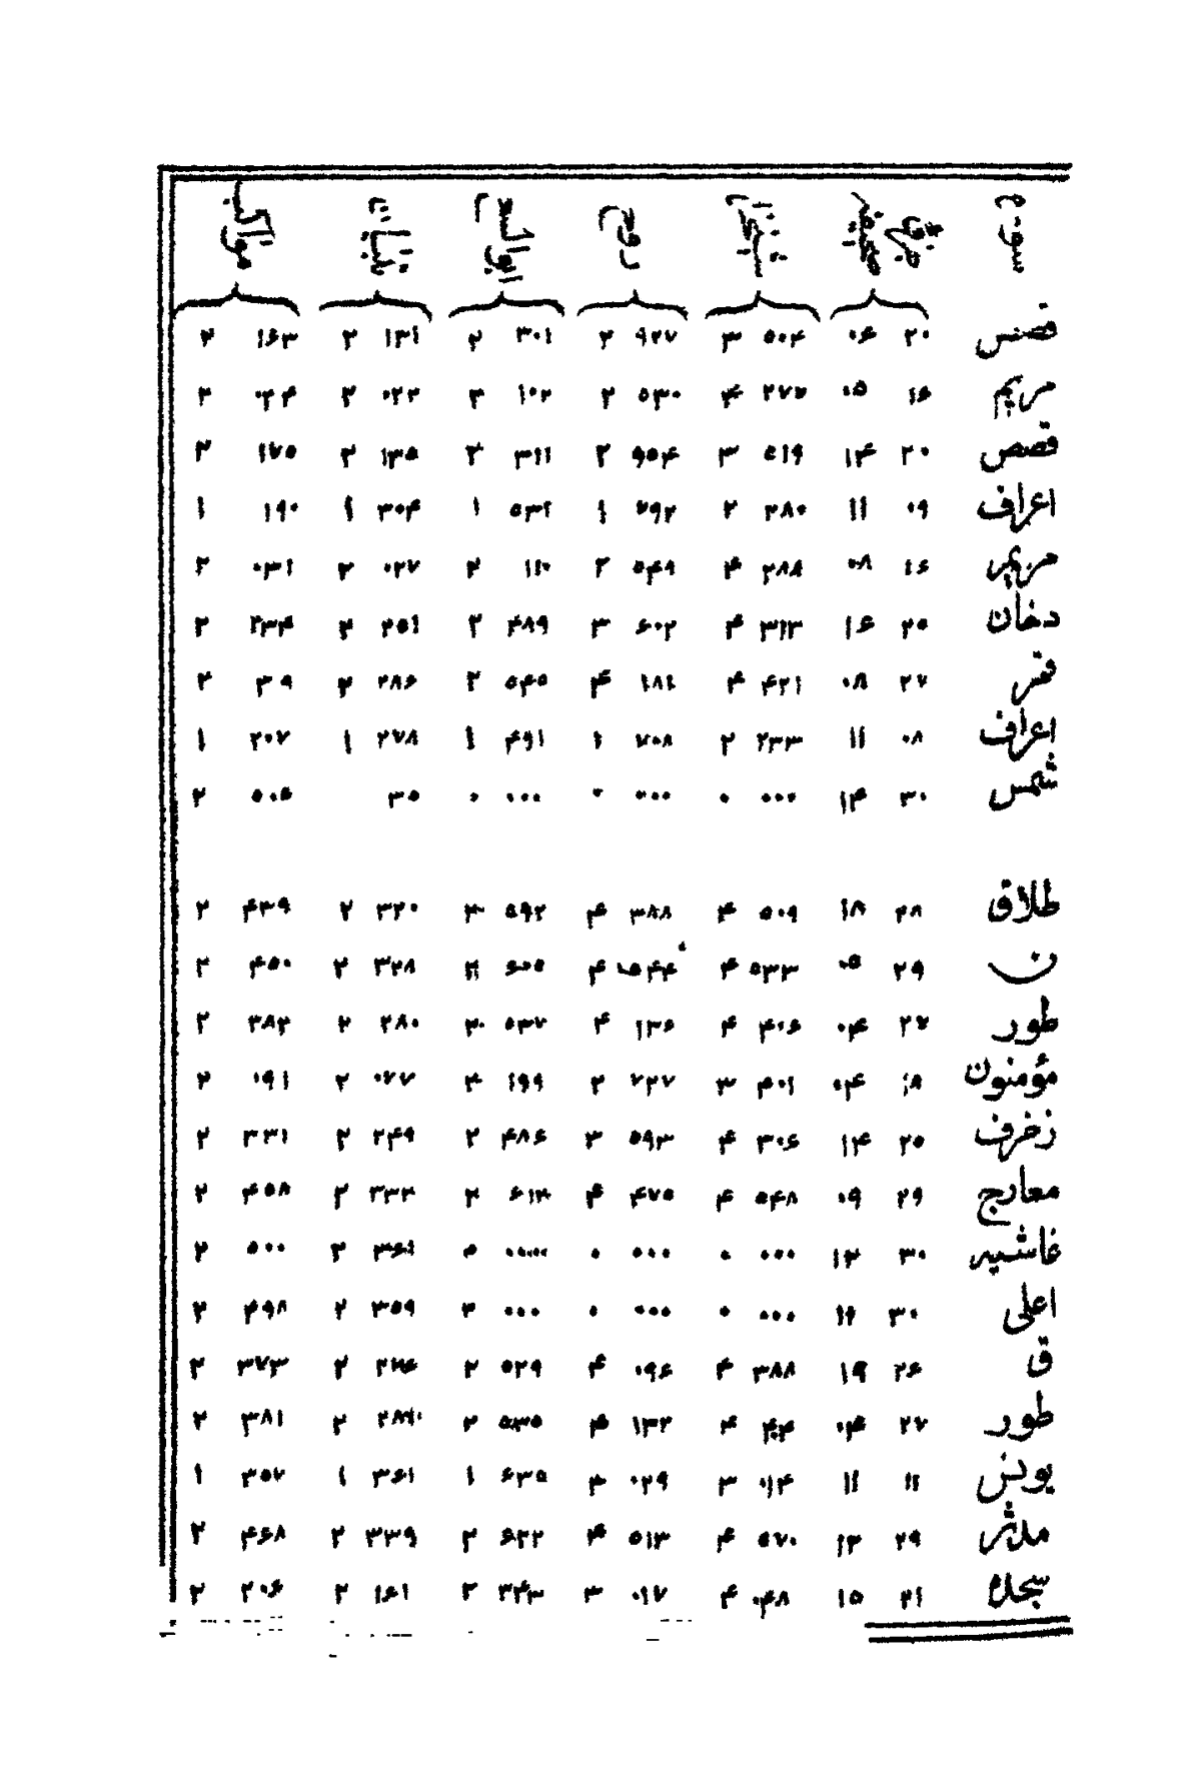 سوره جزو صفحه
قصص ۲۰ ۰۶ ۵۰۴ ۳ ۹۲۷ ۲ ۳۰۱ ۲ ۱۳۱ ۲ ۱۶۳ ۲
مریم ۱۶ ۰۵ ۲۷۷ ۴ ۵۳۰ ۲ ۱۰۲ ۲ ۰۲۲ ۲ ۰۲۴ ۲
قصص ۲۰ ۱۴ ۵۱۹ ۳ ۹۵۴ ۲ ۳۱۱ ۲ ۱۳۵ ۲ ۱۷۵ ۲
اعراف ۰۹ ۱۱ ۲۸۰ ۲ ۷۹۲ ۱ ۵۳۱ ۱ ۳۰۴ ۱ ۱۹۰ ۱
مریم ۱۶ ۰۸ ۲۸۸ ۴ ۵۴۹ ۲ ۱۱۰ ۲ ۰۲۷ ۲ ۰۳۱ ۲
دخان ۲۵ ۱۶ ۳۱۳ ۴ ۶۰۲ ۳ ۴۸۹ ۲ ۲۵۱ ۲ ۲۳۴ ۲
قمر ۲۷ ۰۸ ۴۲۱ ۴ ۱۸۱ ۴ ۵۴۵ ۲ ۲۸۶ ۲ ۳۹ ۲
اعراف ۰۸ ۱۱ ۲۳۳ ۲ ۷۰۸ ۱ ۴۹۱ ۱ ۲۷۸ ۱ ۲۰۷ ۱
شمس ۳۰ ۱۴ ۰۰۰ ۰ ۰۰۰ ۰ ۰۰۰ ۰ ۳۵ ۵۰۶ ۲
طلاق ۲۸ ۱۸ ۵۰۹ ۴ ۳۸۸ ۴ ۵۹۲ ۳۲۰ ۲ ۴۳۹ ۲
ن ۲۹ ۰۵ ۵۳۳ ۴ ۵۴۴ ۴ ۶۰۵ ۳۲۸ ۲ ۴۵۰ ۲
طور ۲۷ ۰۴ ۴۰۶ ۴ ۱۳۶ ۴ ۵۳۷ ۲ ۲۸۰ ۲ ۳۸۲ ۲
مؤمنون ۱۸ ۰۴ ۴۰۱ ۳ ۷۲۷ ۲ ۱۹۹ ۲ ۰۷۷ ۲ ۰۹۱ ۲
زخرف ۲۵ ۱۴ ۳۰۶ ۴ ۵۹۳ ۳ ۴۸۶ ۲ ۲۴۹ ۲ ۳۳۱ ۲
معارج ۲۹ ۰۹ ۵۴۸ ۴ ۴۷۵ ۴ ۶۱۳ ۲ ۳۳۲ ۲ ۴۵۸ ۲
غاشیه ۳۰ ۱۳ ۰۰۰ ۰ ۰۰۰ ۰ ۳۶۱ ۲ ۵۰۰ ۲
اعلی ۳۰ ۱۲ ۰۰۰ ۰ ۰۰۰ ۰ ۰۰۰ ۲ ۳۵۹ ۲ ۴۹۸ ۲
ق ۲۶ ۱۹ ۳۸۸ ۴ ۰۹۶ ۴ ۵۲۹ ۲ ۲ ۳۷۳ ۲
طور ۲۷ ۰۴ ۴۰۴ ۴ ۱۳۲ ۴ ۵۳۵ ۲ ۲ ۳۸۱ ۲
یونس ۱۱ ۱۱ ۰۱۴ ۳ ۰۲۹ ۲ ۶۳۵ ۱ ۳۶۱ ۱ ۳۵۷ ۱
مدثر ۲۹ ۱۳ ۵۷۰ ۴ ۵۱۳ ۴ ۶۲۲ ۲ ۳۳۹ ۲ ۴۶۸ ۲
سجده ۲۱ ۱۵ ۰۴۸ ۴ ۰۱۷ ۳ ۳۴۳ ۲ ۱۶۱ ۲ ۲۰۶ ۲